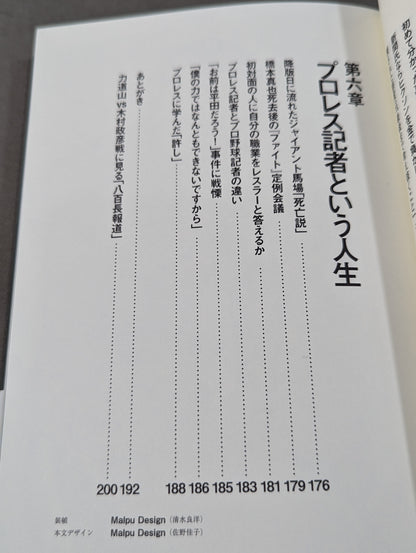 初めて分かっ
第六章
プロレス記者という人生
降版日に流れたジャイアント馬場「死亡説」 176
橋本真也死去後の『ファイト』定例会議 179
初対面の人に自分の職業をレスラーと答えるか 181
プロレス記者とプロ野球記者の違い 183
「お前は平田だろう！」事件に戦慄 185
「僕の力ではなんともできないですから」 186
プロレスに学んだ「許し」 188
あとがき 192
力道山vs木村政彦戦に見る「八百長報道」 200
装幀 Malpu Design（清水良洋）
本文デザイン Malpu Design（佐野佳子）